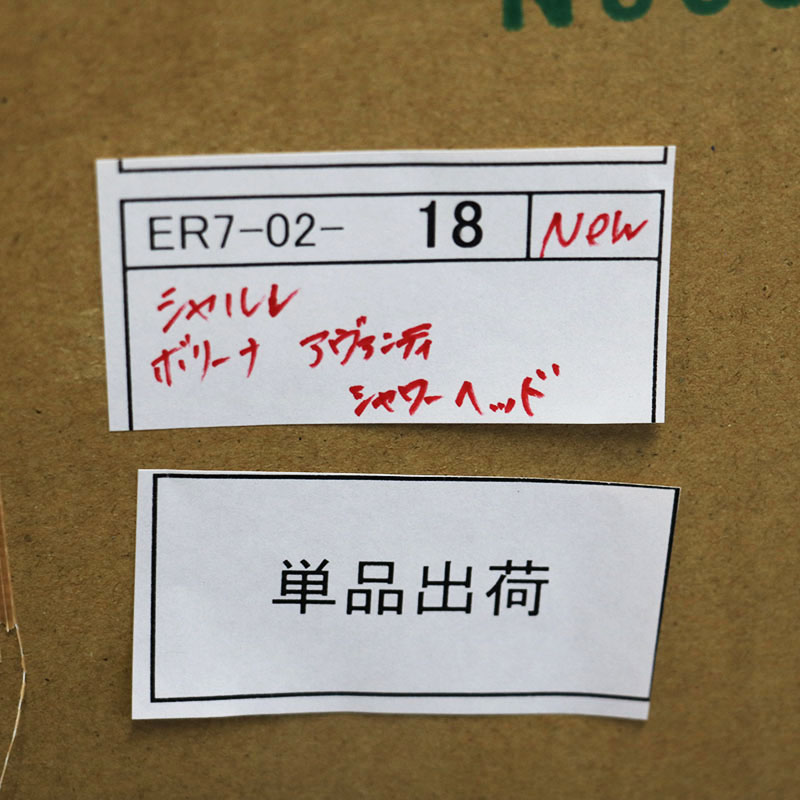 ER7-02- 18 New
シャルレ
ボリーナ アヴァンティ
シャワーヘッド
単品出荷